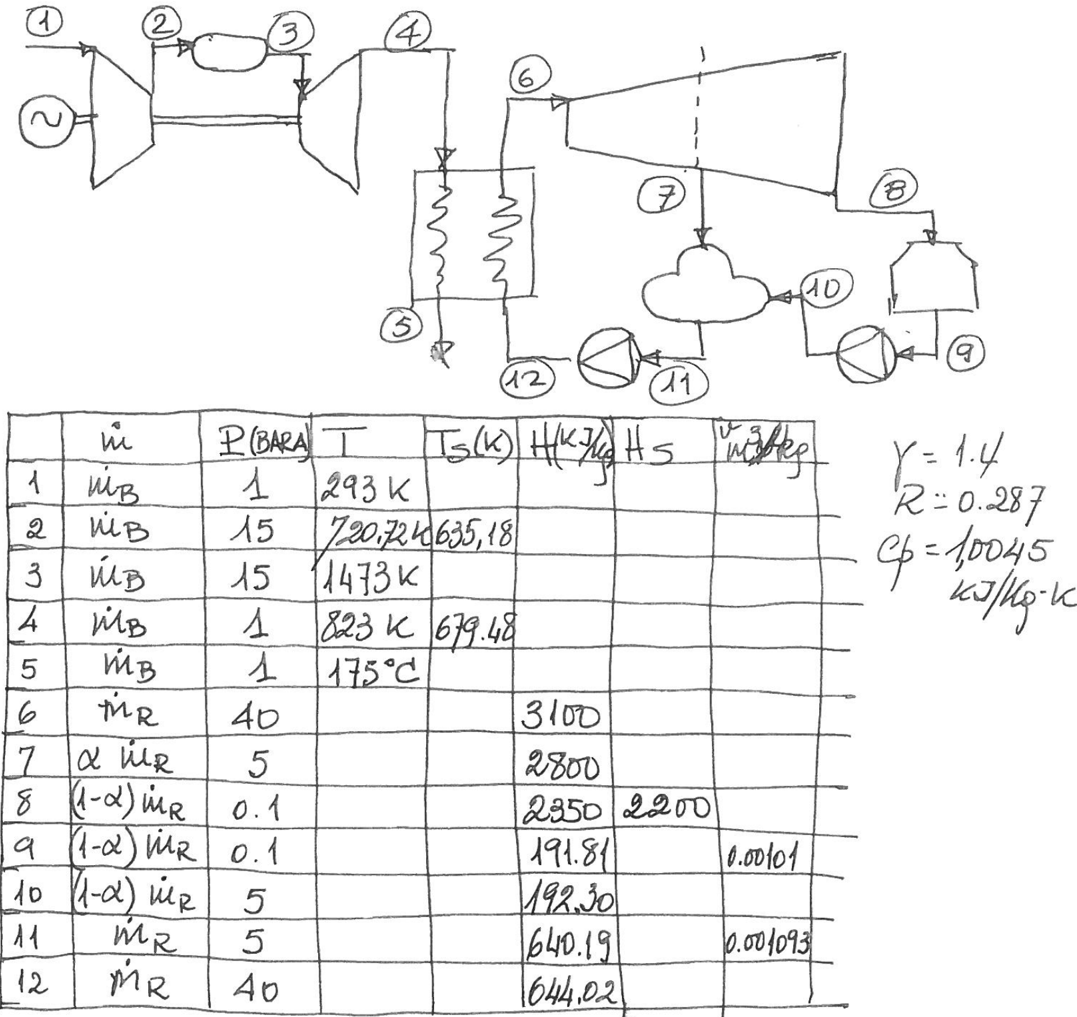 1 2 3 4
6
7 8
5 10
12 11 9
ṁ P(BARA) T Ts(K) H(KJ/kg) Hs v m³/kg
1 ṁB 1 293 K
2 ṁB 15 720.72K 635,18
3 ṁB 15 1473 K
4 ṁB 1 823 K 679.48
5 ṁB 1 175°C
6 ṁR 40 3100
7 α ṁR 5 2800
8 (1-α) ṁR 0.1 2350 2200
9 (1-α) ṁR 0.1 191.81 0.00101
10 (1-α) ṁR 5 192.30
11 ṁR 5 640.19 0.001093
12 ṁR 40 644.02
γ = 1.4
R = 0.287
Cp = 1,0045
KJ/Kg·K